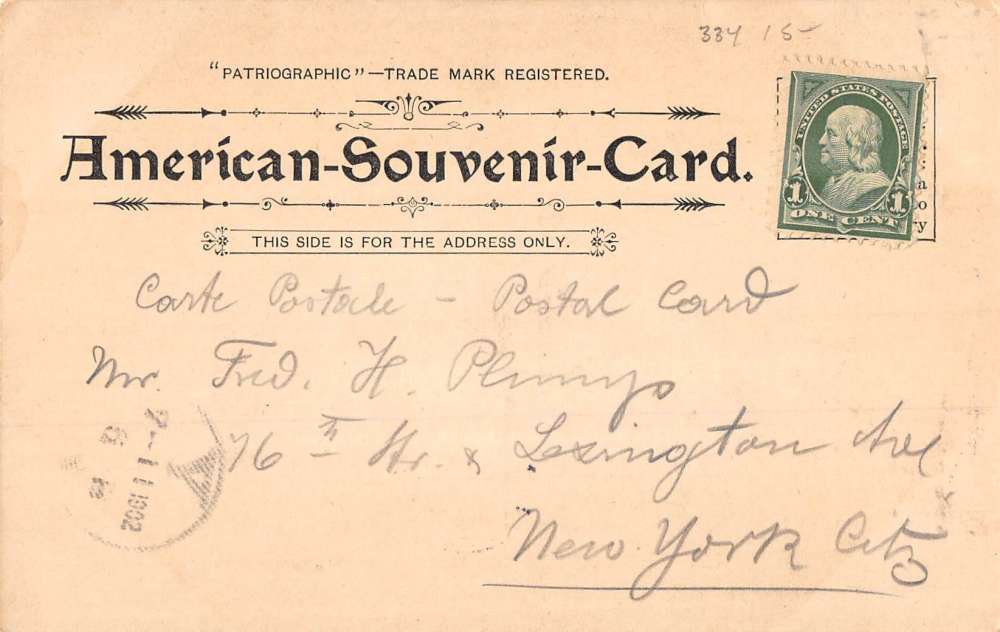 334 15-
"PATRIOGRAPHIC"—TRADE MARK REGISTERED.
American-Souvenir-Card.
THIS SIDE IS FOR THE ADDRESS ONLY.
UNITED STATES POSTAGE
1 ONE CENT 1
Carte Postale - Postal Card
Mr. Fred. H.
76th Str. & Lexington Ave
New York City
1902